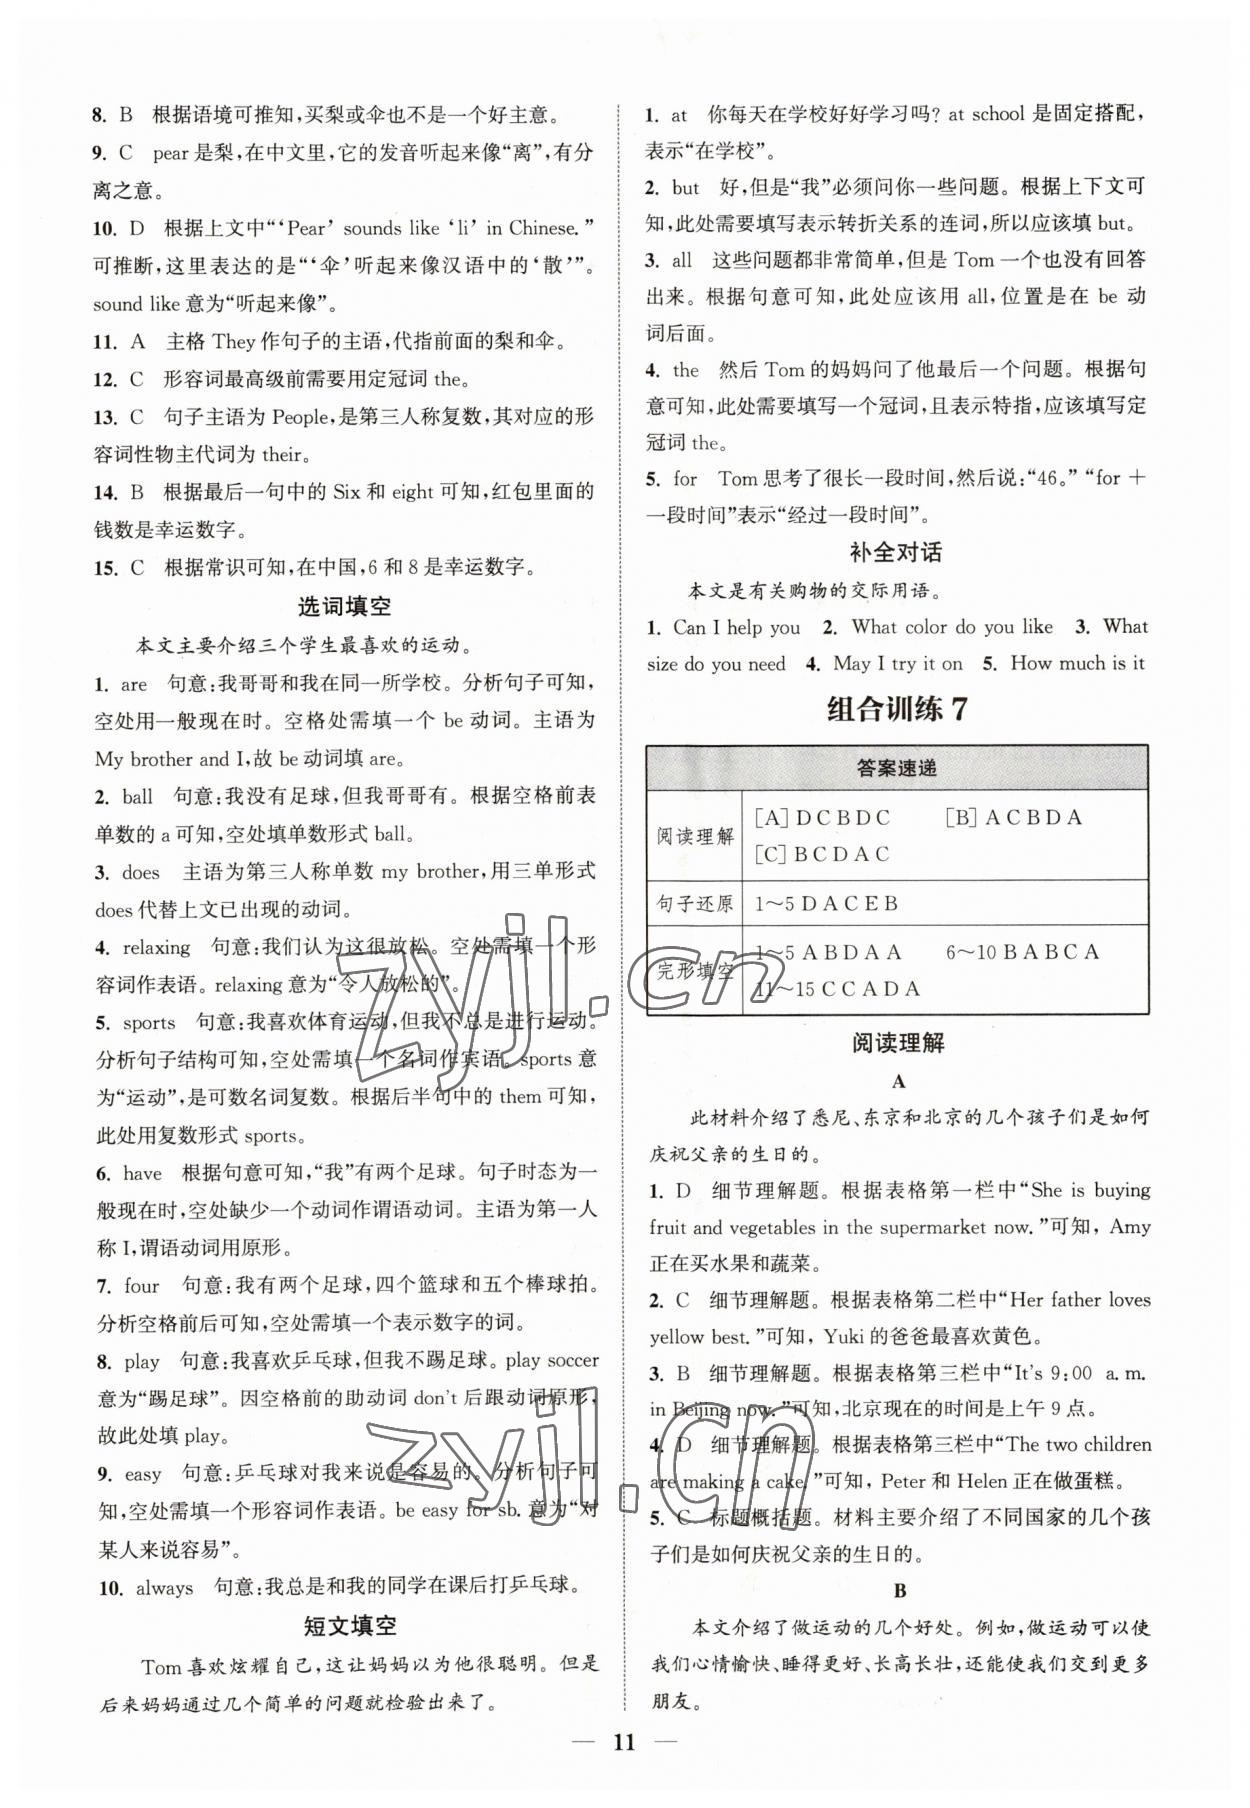 8. B　根据语境可推知,买梨或伞也不是一个好主意。
9. C　pear 是梨,在中文里,它的发音听起来像“离”,有分
离之意。
10. D　根据上文中“‘Pear’ sounds like ‘li’ in Chinese.”
可推断,这里表达的是“‘伞’听起来像汉语中的‘散’”。
sound like 意为“听起来像”。
11. A　主格 They 作句子的主语,代指前面的梨和伞。
12. C　形容词最高级前需要用定冠词 the。
13. C　句子主语为 People,是第三人称复数,其对应的形
容词性物主代词为 their。
14. B　根据最后一句中的 Six 和 eight 可知,红包里面的
钱数是幸运数字。
15. C　根据常识可知,在中国,6 和 8 是幸运数字。
选词填空
本文主要介绍三个学生最喜欢的运动。
1. are　句意:我哥哥和我在同一所学校。分析句子可知,
空处用一般现在时。空格处需填一个 be 动词。主语为
My brother and I,故 be 动词填 are。
2. ball　句意:我没有足球,但我哥哥有。根据空格前表
单数的 a 可知,空处填单数形式 ball。
3. does　主语为第三人称单数 my brother,用三单形式
does 代替上文已出现的动词。
4. relaxing　句意:我们认为这很放松。空处需填一个形
容词作表语。relaxing 意为“令人放松的”。
5. sports　句意:我喜欢体育运动,但我不总是进行运动。
分析句子结构可知,空处需填一个名词作宾语。sports 意
为“运动”,是可数名词复数。根据后半句中的 them 可知,
此处用复数形式 sports。
6. have　根据句意可知,“我”有两个足球。句子时态为一
般现在时,空处缺少一个动词作谓语动词。主语为第一人
称 I,谓语动词用原形。
7. four　句意:我有两个足球,四个篮球和五个棒球拍。
分析空格前后可知,空处需填一个表示数字的词。
8. play　句意:我喜欢乒乓球,但我不踢足球。play soccer
意为“踢足球”。因空格前的助动词 don't 后跟动词原形,
故此处填 play。
9. easy　句意:乒乓球对我来说是容易的。分析句子可
知,空处需填一个形容词作表语。be easy for sb. 意为“对
某人来说容易”。
10. always　句意:我总是和我的同学在课后打乒乓球。
短文填空
Tom 喜欢炫耀自己,这让妈妈以为他很聪明。但是
后来妈妈通过几个简单的问题就检验出来了。
1. at　你每天在学校好好学习吗? at school 是固定搭配,
表示“在学校”。
2. but　好,但是“我”必须问你一些问题。根据上下文可
知,此处需要填写表示转折关系的连词,所以应该填 but。
3. all　这些问题都非常简单,但是 Tom 一个也没有回答
出来。根据句意可知,此处应该用 all,位置是在 be 动
词后面。
4. the　然后 Tom 的妈妈问了他最后一个问题。根据句
意可知,此处需要填写一个冠词,且表示特指,应该填写定
冠词 the。
5. for　Tom 思考了很长一段时间,然后说:“46。”“for ＋
一段时间”表示“经过一段时间”。
补全对话
本文是有关购物的交际用语。
1. Can I help you　2. What color do you like　3. What
size do you need　4. May I try it on　5. How much is it
组合训练 7
答案速递
阅读理解　[A] D C B D C　[B] A C B D A
[C] B C D A C
句子还原　1～5 D A C E B
完形填空　1～5 A B D A A　6～10 B A B C A
11～15 C C A D A
阅读理解
A
此材料介绍了悉尼、东京和北京的几个孩子们是如何
庆祝父亲的生日的。
1. D　细节理解题。根据表格第一栏中“She is buying
fruit and vegetables in the supermarket now.”可知, Amy
正在买水果和蔬菜。
2. C　细节理解题。根据表格第二栏中“Her father loves
yellow best.”可知, Yuki 的爸爸最喜欢黄色。
3. B　细节理解题。根据表格第三栏中“It's 9:00 a. m.
in Beijing now.”可知,北京现在的时间是上午 9 点。
4. D　细节理解题。根据表格第三栏中“The two children
are making a cake.”可知, Peter 和 Helen 正在做蛋糕。
5. C　标题概括题。材料主要介绍了不同国家的几个孩
子们是如何庆祝父亲的生日的。
B
本文介绍了做运动的几个好处。例如,做运动可以使
我们心情愉快、睡得更好、长高长壮,还能使我们交到更多
朋友。
11
zyjl.cn
zyjl.cn